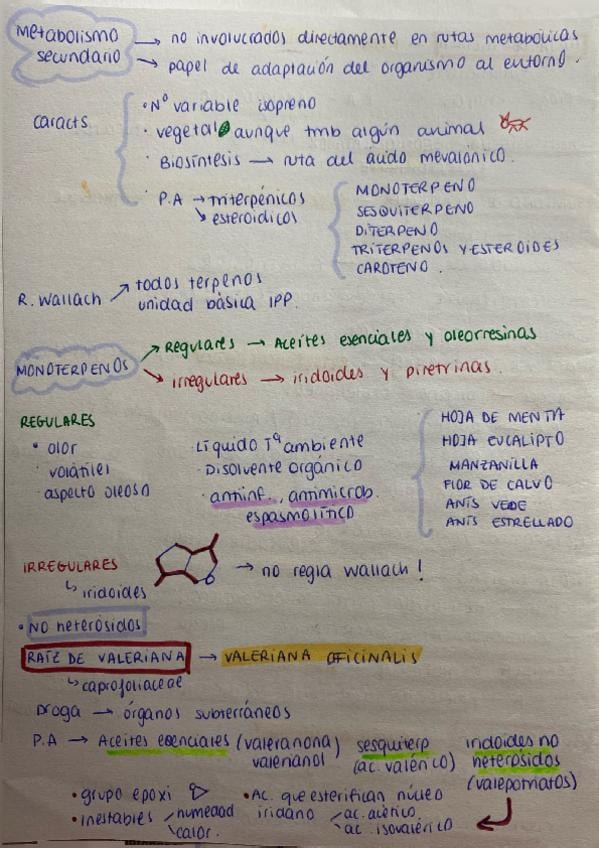 Metabolismo secundario → no involucrados directamente en rutas metabólicas
→ papel de adaptación del organismo al entorno.
caracts
· Nº variable isopreno
· vegetal aunque tmb algún animal
· Biosíntesis → ruta del ácido mevalónico.
· P.A → triterpénicos
↘ esteroidicos
MONOTERPENO
SESQUITERPENO
DITERPENO
TRITERPENOS Y ESTEROIDES
CAROTENO.
R. Wallach ↗ todos terpenos
unidad básica IPP.
MONOTERPENOS
Regulares → Aceites esenciales y oleorresinas
irregulares → iridoides y piretrinas.
REGULARES
· olor
· volátiles
· aspecto oleoso
· Líquido Tª ambiente
· Disolvente orgánico
· antiinf., antimicrob.
espasmolítico
HOJA DE MENTA
HOJA EUCALIPTO
MANZANILLA
FLOR DE CALVO
ANÍS VEDE
ANÍS ESTRELLADO
IRREGULARES
↳ iridoides
O
→ no regla wallach!
· NO heterósidos
RAÍZ DE VALERIANA → VALERIANA OFICINALIS
↳ caprofoliaceae
Droga → órganos subterráneos
P.A → Aceites esenciales (valeranona)
valerianol
sesquiterp
(ac. valénico)
iridoides no
heterósidos
(valepotriatos)
· grupo epoxi
· inestables
humedad
calor.
· Ac. que esterifican núcleo
iridano
ac. acético
ac isovalérico